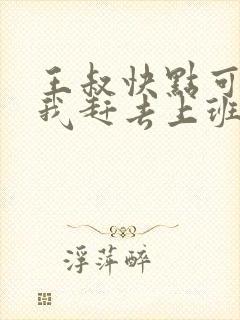 王叔快點可
我赶去上班
浮萍醉